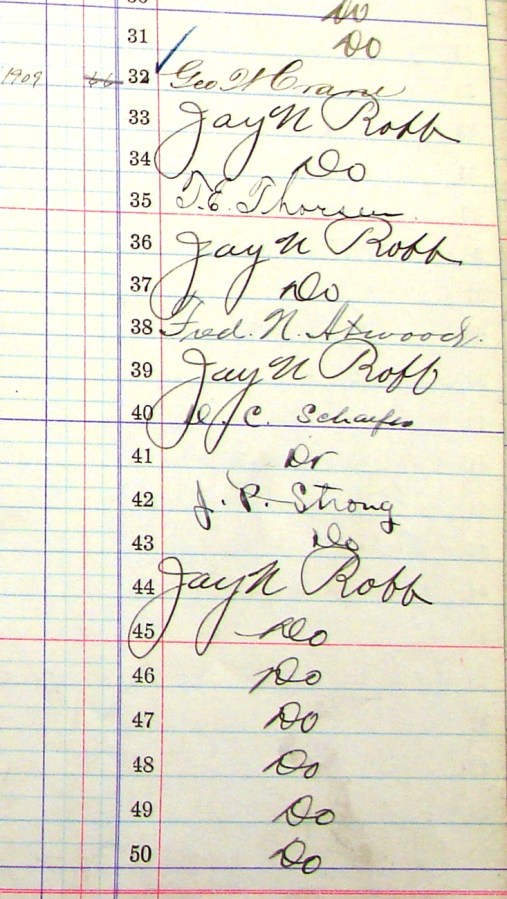 30 Do
31 Do
1909 32 Geo H Crane
33 Jay N Robb
34 Do
35 T. E. Thorsen
36 Jay N Robb
37 Do
38 Fred. N. Atwood.
39 Jay N Robb
40 C. Schaefer
41 Do
42 J. P. Strong
43 Do
44 Jay N Robb
45 Do
46 Do
47 Do
48 Do
49 Do
50 Do